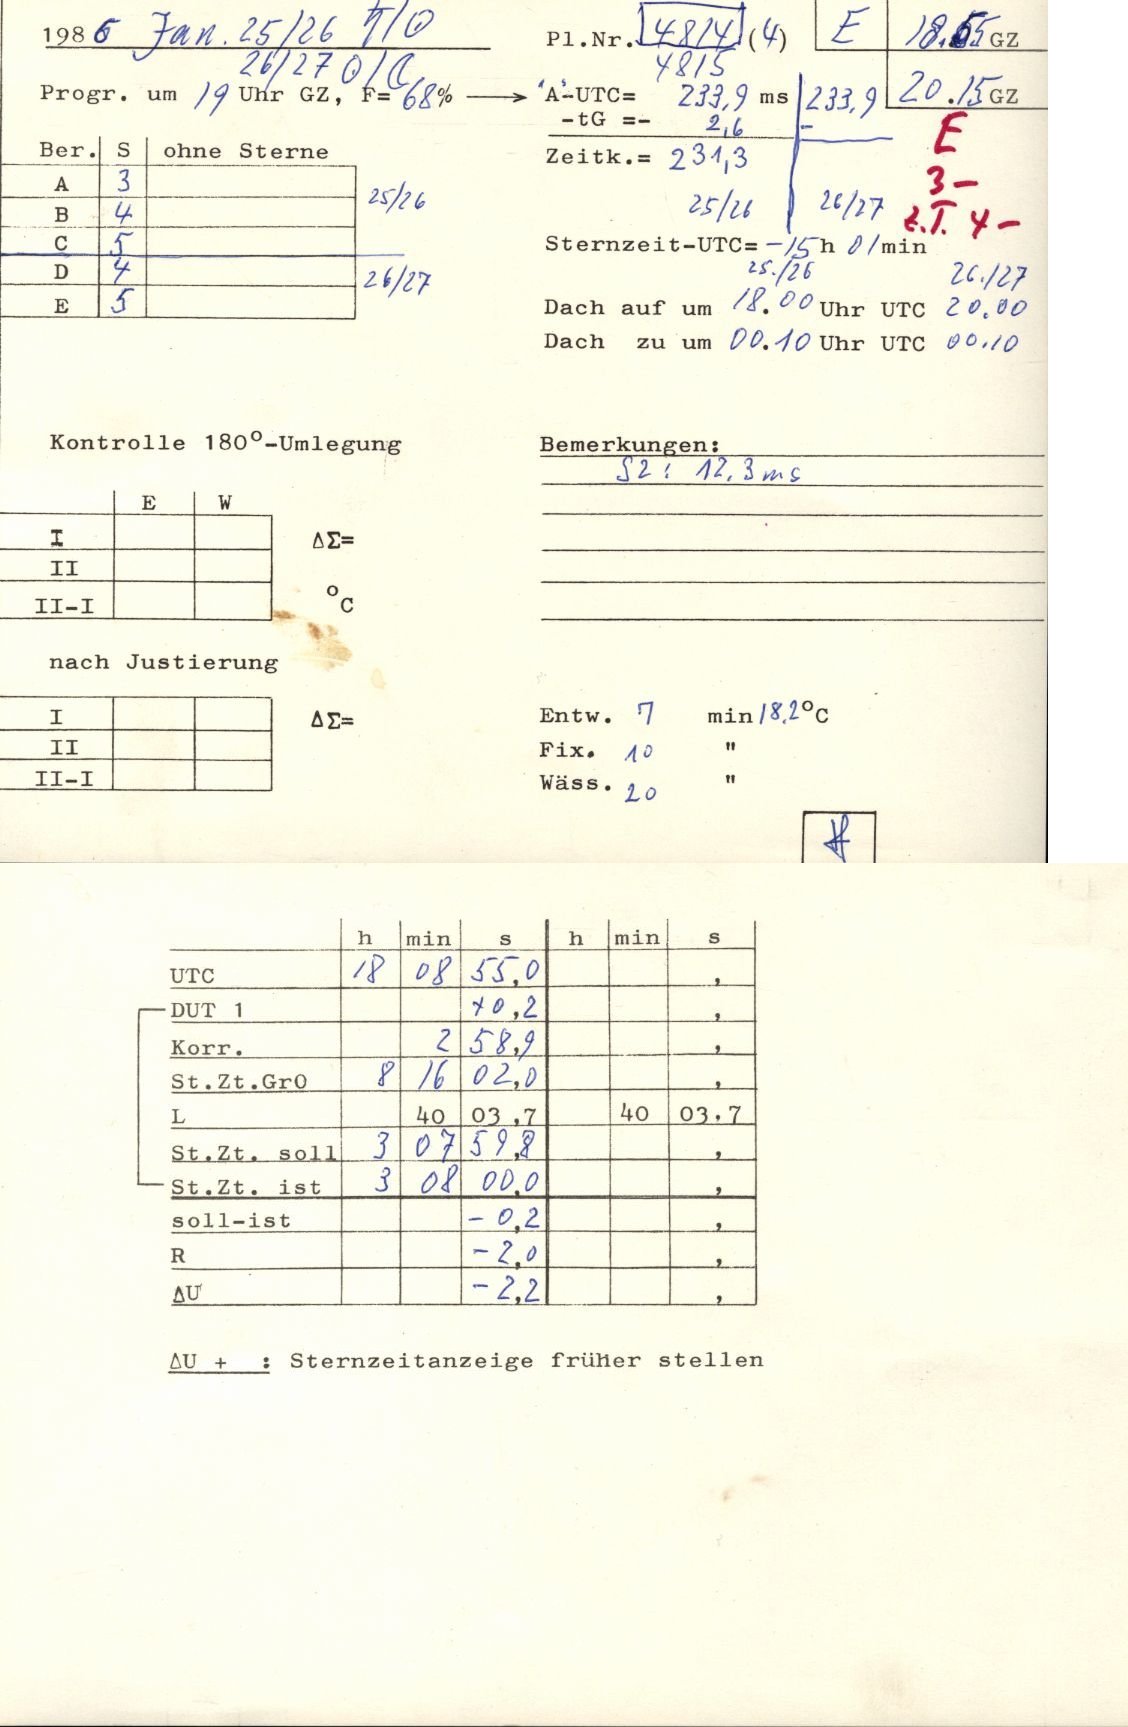 1986 Jan. 25/26 T/O Pl.Nr. 4814 (4) E 18.55 GZ
26/27 O/C 4815
Progr. um 19 Uhr GZ, F= 68% → 'A'-UTC= 233,9 ms 233,9 20.15 GZ
-tG =- 2,6 -
E
Ber. S ohne Sterne Zeitk.= 231,3
A 3 25/26 3-
B 4 25/26 26/27 z.T. 4-
C 5 Sternzeit-UTC= -15 h 01 min
D 4 26/27 25./26 26./27
E 5 Dach auf um 18.00 Uhr UTC 20.00
Dach zu um 00.10 Uhr UTC 00.10
Kontrolle 180°-Umlegung Bemerkungen:
S2: 12,3 ms
E W
I ΔΣ=
II
II-I °C
nach Justierung
I ΔΣ= Entw. 7 min 18,2 °C
II Fix. 10 "
II-I Wäss. 20 "
h min s h min s
UTC 18 08 55,0 ,
DUT 1 +0,2 ,
Korr. 2 58,9 ,
St.Zt.Gr0 8 16 02,0 ,
L 40 03,7 40 03,7
St.Zt. soll 3 07 59,8 ,
St.Zt. ist 3 08 00,0 ,
soll-ist -0,2 ,
R -2,0 ,
ΔU -2,2 ,
ΔU + : Sternzeitanzeige früher stellen